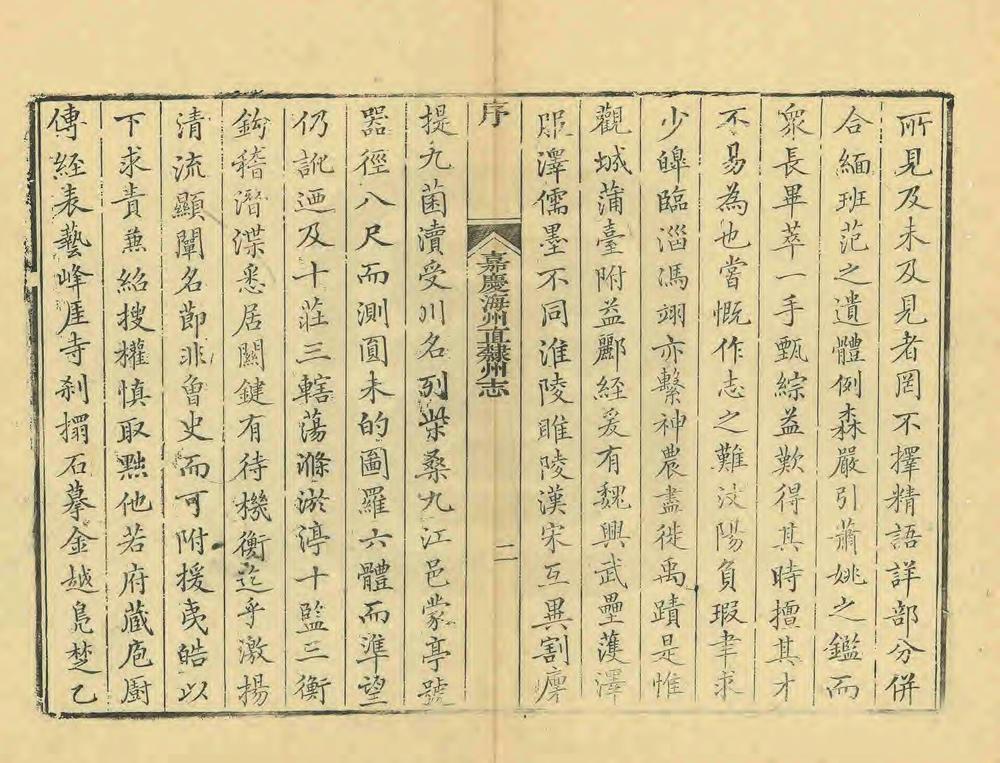 所見及未及見者罔不擇精語詳部分併
合緬班范之遺體例森嚴引蕭姚之鑑而
衆長畢萃一手甄綜益歎得其時擅其才
不易為也嘗慨作志之難汶陽負瑕聿求
少皞臨淄馮翊亦繫神農盡徙禹蹟是惟
觀城蒲臺附益酈經爰有魏興武壘濩澤
服澤儒墨不同淮陵睢陵漢宋互異割糜
序
嘉慶海州直隸州志
二
提九菌瀆受川名列柴桑九江邑蒙亭號
器徑八尺而測圓未的圖羅六體而準望
仍訛迺及十莊三轄蕩滌淤渟十監三衡
鉤稽潛渫悉居關鍵有待機衡迄乎激揚
清流顯闡名節非魯史而可附援夷皓以
下求責蕪紿搜權慎取黜他若府藏庖廚
傳經表藝峰厓寺刹搨石摹金越鳧楚乙